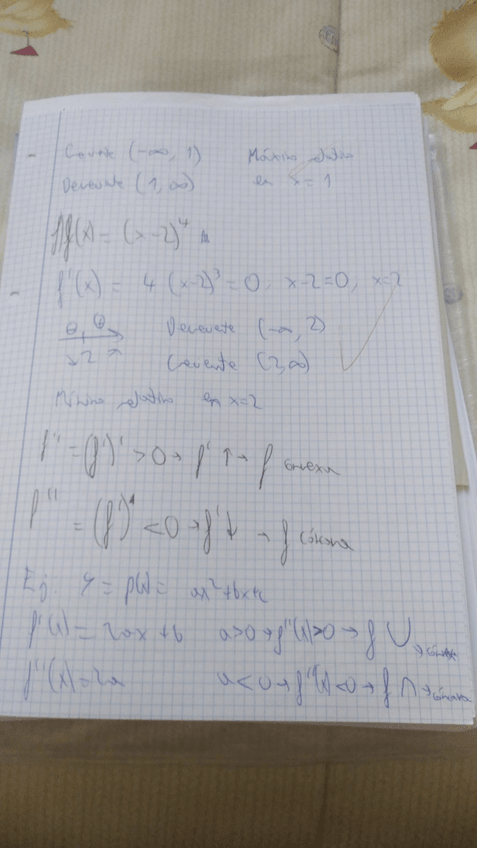 - Creciente (-∞, 1) Máximo relativo
Decreciente (1, ∞) en x=1
f) f(x) = (x-2)⁴
- f'(x) = 4 (x-2)³ = 0, x-2=0, x=2
⊖ ⊕ Decreciente (-∞, 2)
↘ 2 ↗ Creciente (2, ∞)
Mínimo relativo en x=2
f'' = (f')' > 0 → f' ↑ → f convexa
f'' = (f')' < 0 → f' ↓ → f cóncava
Ej: y = p(x) = ax²+bx+c
f'(x) = 2ax + b a>0 → f''(x)>0 → f ∪ → convexa
f''(x) = 2a a<0 → f''(x)<0 → f ∩ → cóncava